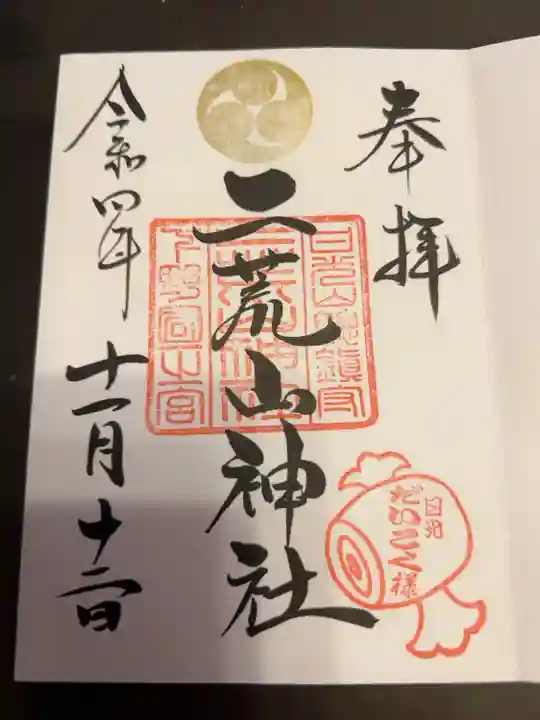 奉拝
日光山総鎮守
二荒山神社
二荒山神社
下野国一之宮
日光
だいこく様
令和四年十一月十二日